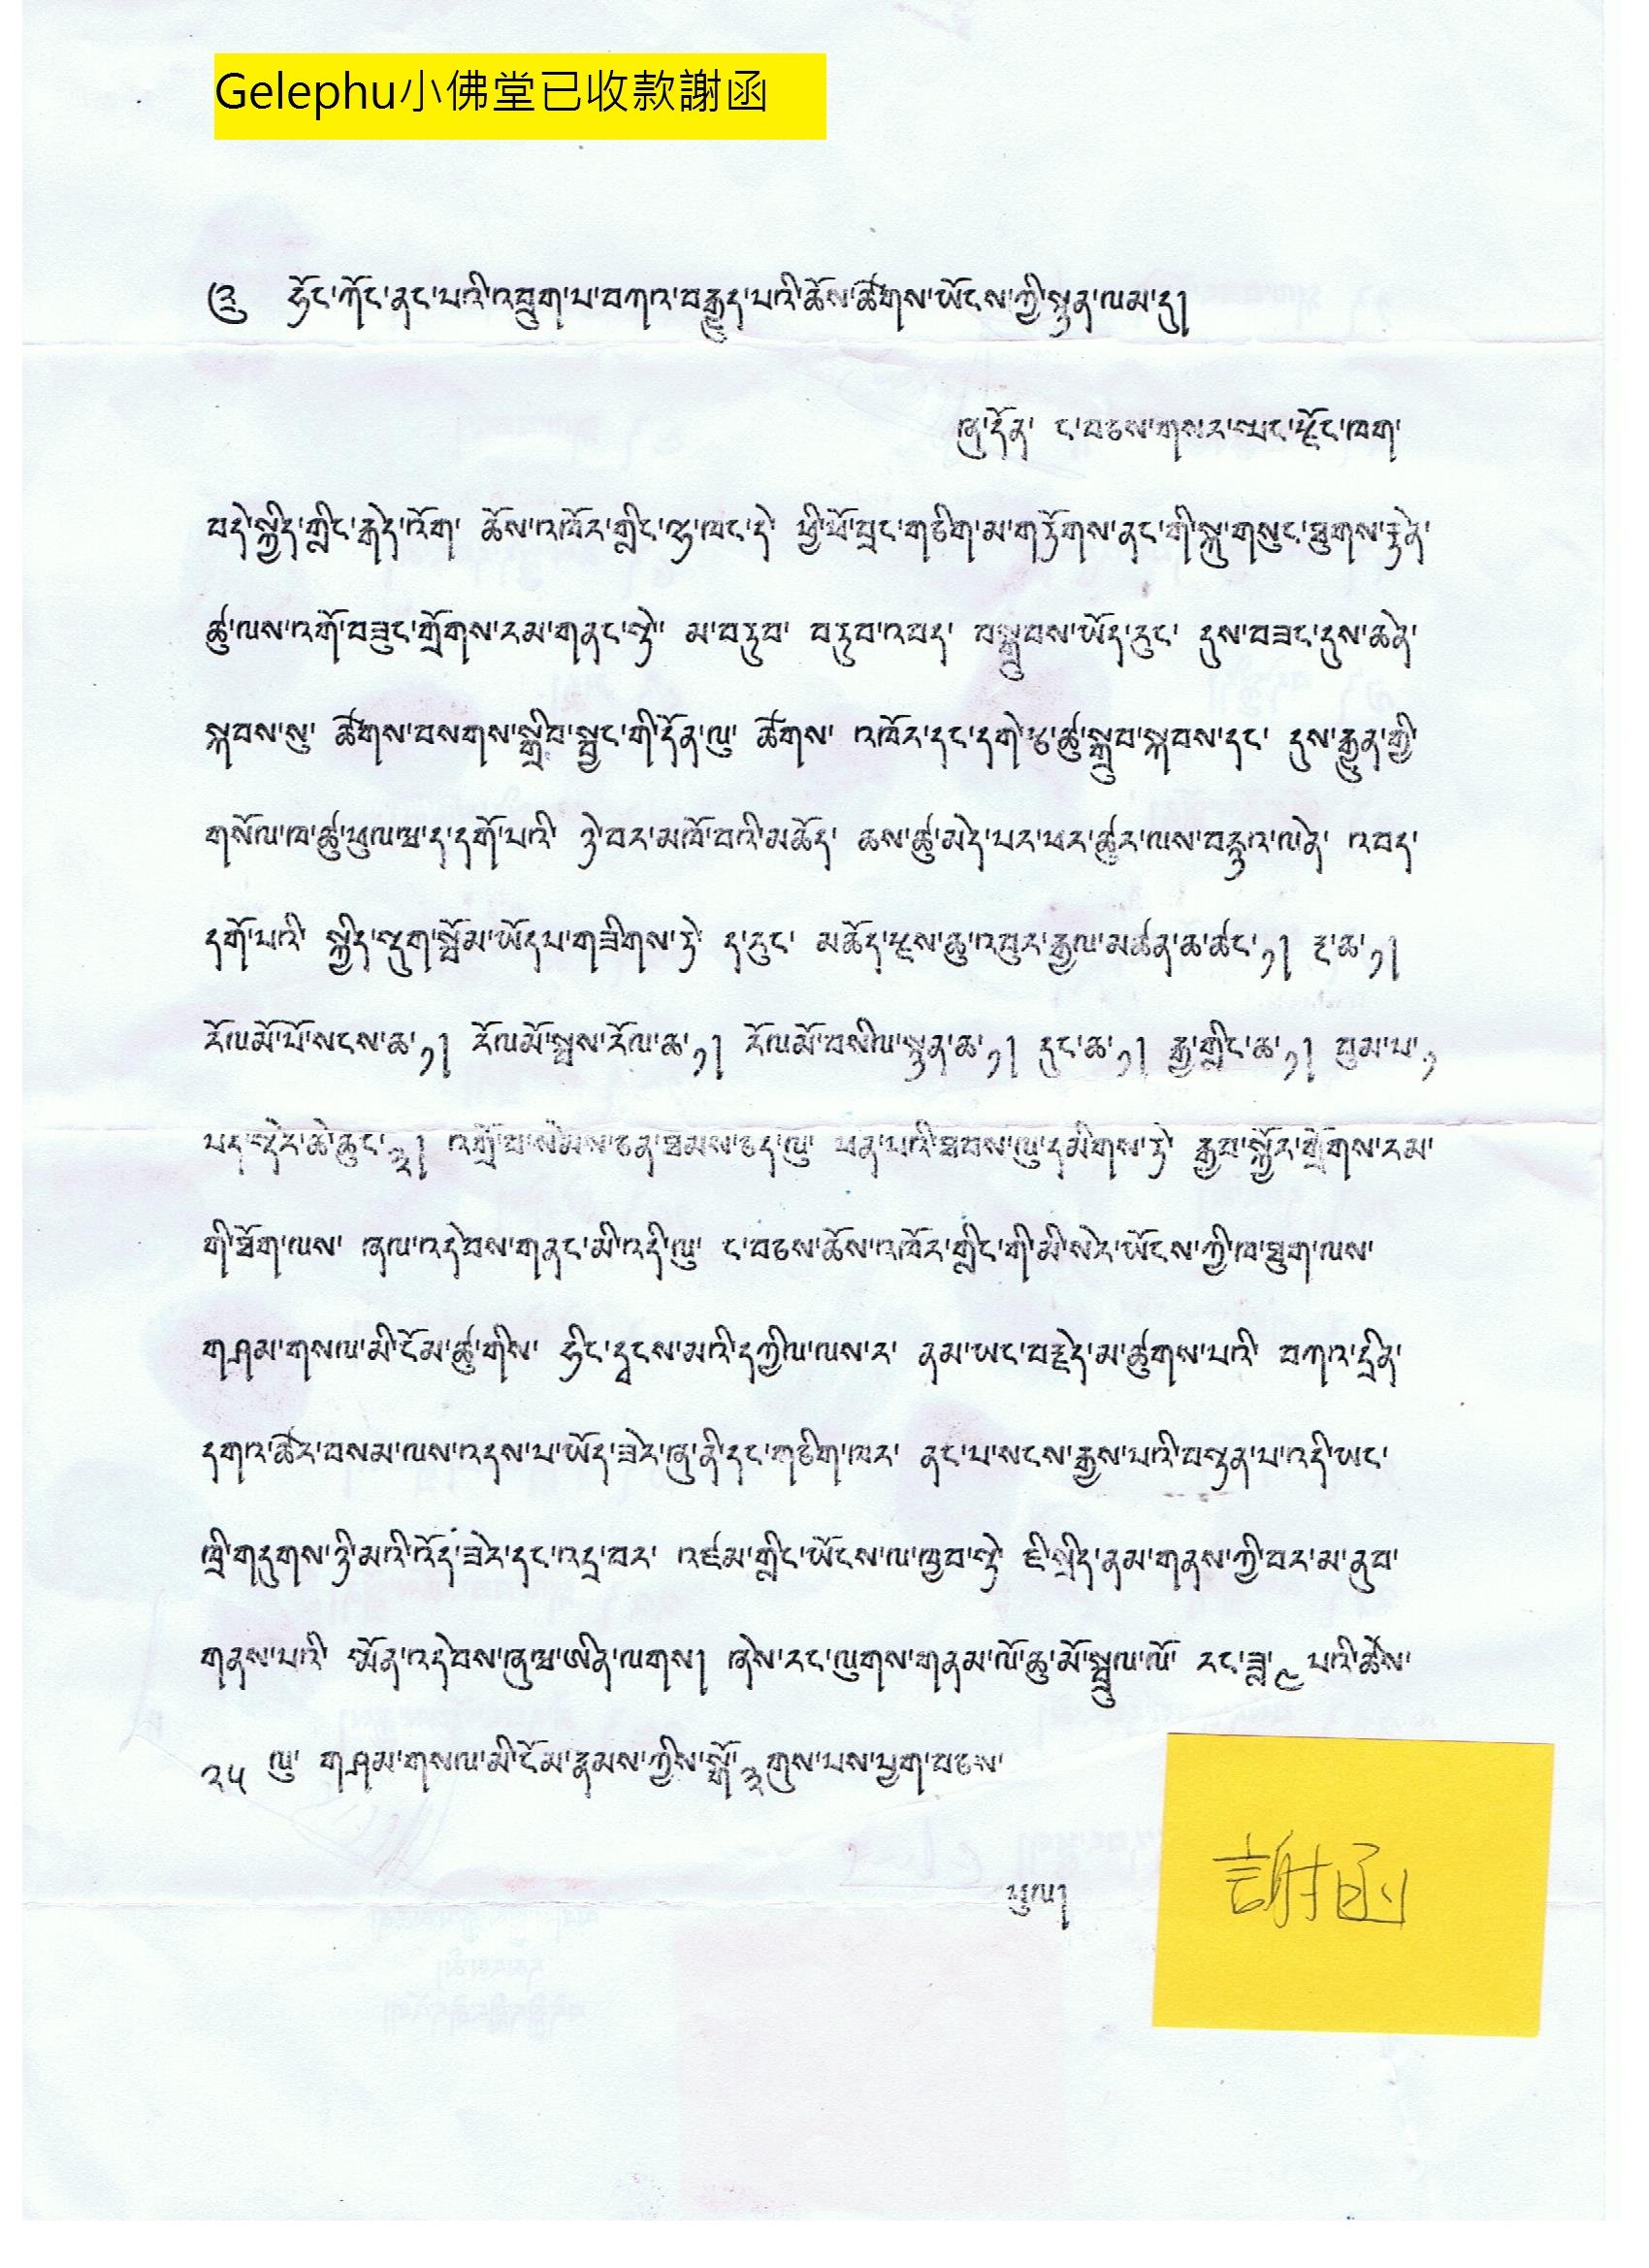 Gelephu小佛堂已收款謝函
༄༅ ཧོང་ཀོང་ནང་པའི་འབྲུག་པ་བཀའ་བརྒྱུད་པའི་ཆོས་ཚོགས་ཡོངས་ཀྱི་སྤྱན་ལམ་དུ།
ཞུ་དོན་ ང་བཅས་གསར་སྤང་རྫོང་ཁག་
བདེ་སྐྱིད་གླིང་རྒེད་འོག་ ཆོས་འཁོར་གླིང་ལྷ་ཁང་དེ་ ཕྱི་ཕོ་བྲང་གཅིག་མ་གཏོགས་ནང་གི་སྐུ་གསུང་ཐུགས་རྟེན་
ཚུ་ལས་འགོ་བཟུང་གྲོགས་རམ་གནང་སྟེ་ མ་བཏུབ་ བཏུབ་འབད་ བསྒྲུབས་ཡོད་རུང་ དུས་བཟང་དུས་ཆེན་
སྐབས་སུ་ ཚོགས་བསགས་སྒྲིབ་སྦྱང་གི་དོན་ལུ་ ཚོགས་ འཁོར་དང་དགེ་ཙ་ཚུ་སྒྲུབ་སྐབས་དང་ དུས་རྒྱུན་གྱི་
གསོལ་ཁ་ཚུ་ཕུལ་བ་ད་དགོ་པའི་ ཉེ་བར་མཁོ་བའི་མཆོད་ ཆས་ཚུ་མེད་པར་ཕར་ཚུར་ལས་བརྙ་ལེན་ འབད་
དགོ་པའི་ སྐྱིད་སྡུག་སྦོམ་ཡོདཔ་གཟིགས་ཏེ་ ད་རུང་ མཆོད་རྫས་ཆུ་འབུར་རྒྱལ་མཚན་ཆ་ཚང་༡། རྔ་ཆ་༡།
རོལ་མོ་པོ་སངས་ཆ་༡། རོལ་མོ་སྦུས་རོལ་ཆ་༡། རོལ་མོ་བསིལ་སྙན་ཆ་༡། དུང་ཆ་༡། རྒྱ་གླིང་ཆ་༡། བུམ་པ་༡
པད་སྡེར་ཆེ་ཆུང་༢། འགྲོ་བ་སེམས་ཅན་ཐམས་ཅད་ལུ་ ཕན་པའི་ཐབས་ལུ་དམིགས་ཏེ་ རྒྱབ་སྐྱོར་གྲོགས་རམ་
གི་ཐོག་ལས་ ཞལ་འདེབས་གནང་མི་འདི་ལུ་ ང་བཅས་ཆོས་འཁོར་གླིང་གི་མི་སེར་ཡོངས་ཀྱི་ཁ་ཐུག་ལས་
གཤམ་གསལ་མི་ངོམ་ཚུ་གིས་ ཧིང་དྭངས་མའི་དཀྱིལ་ལས་ར་ ནམ་ཡང་བརྗེད་མ་ཚུགས་པའི་ བཀའ་དྲིན་
དགའ་ཚོར་བསམ་ལས་འདས་པ་ཡོད་ཟེར་ཞུ་ནི་དང་གཅིག་ཁར་ ནང་པ་སངས་རྒྱས་པའི་བསྟན་པ་འདི་ཡང་
ཁྲི་གདུགས་ཉི་མའི་འོད་ཟེར་དང་འདྲ་བར་ འཛམ་གླིང་ཡོངས་ལ་ཁྱབ་སྟེ་ ཇི་སྲིད་ནམ་གནས་ཀྱི་བར་མ་ནུབ་
གནས་པའི་ སྨོན་འདེབས་ཞུ་བ་ཨིན་ལགས། ཞེས་རང་ལུགས་གནམ་ལོ་ཆུ་མོ་སྦྲུལ་ལོ་ རང་ཟླ་༩ པའི་ཚེས་
༢༥ ལུ་ གཤམ་གསལ་མི་ངོམ་རྣམས་ཀྱིས་སྒོ་༣གུས་པས་ཕྱག་བཅས་
ཕུལ།
謝函